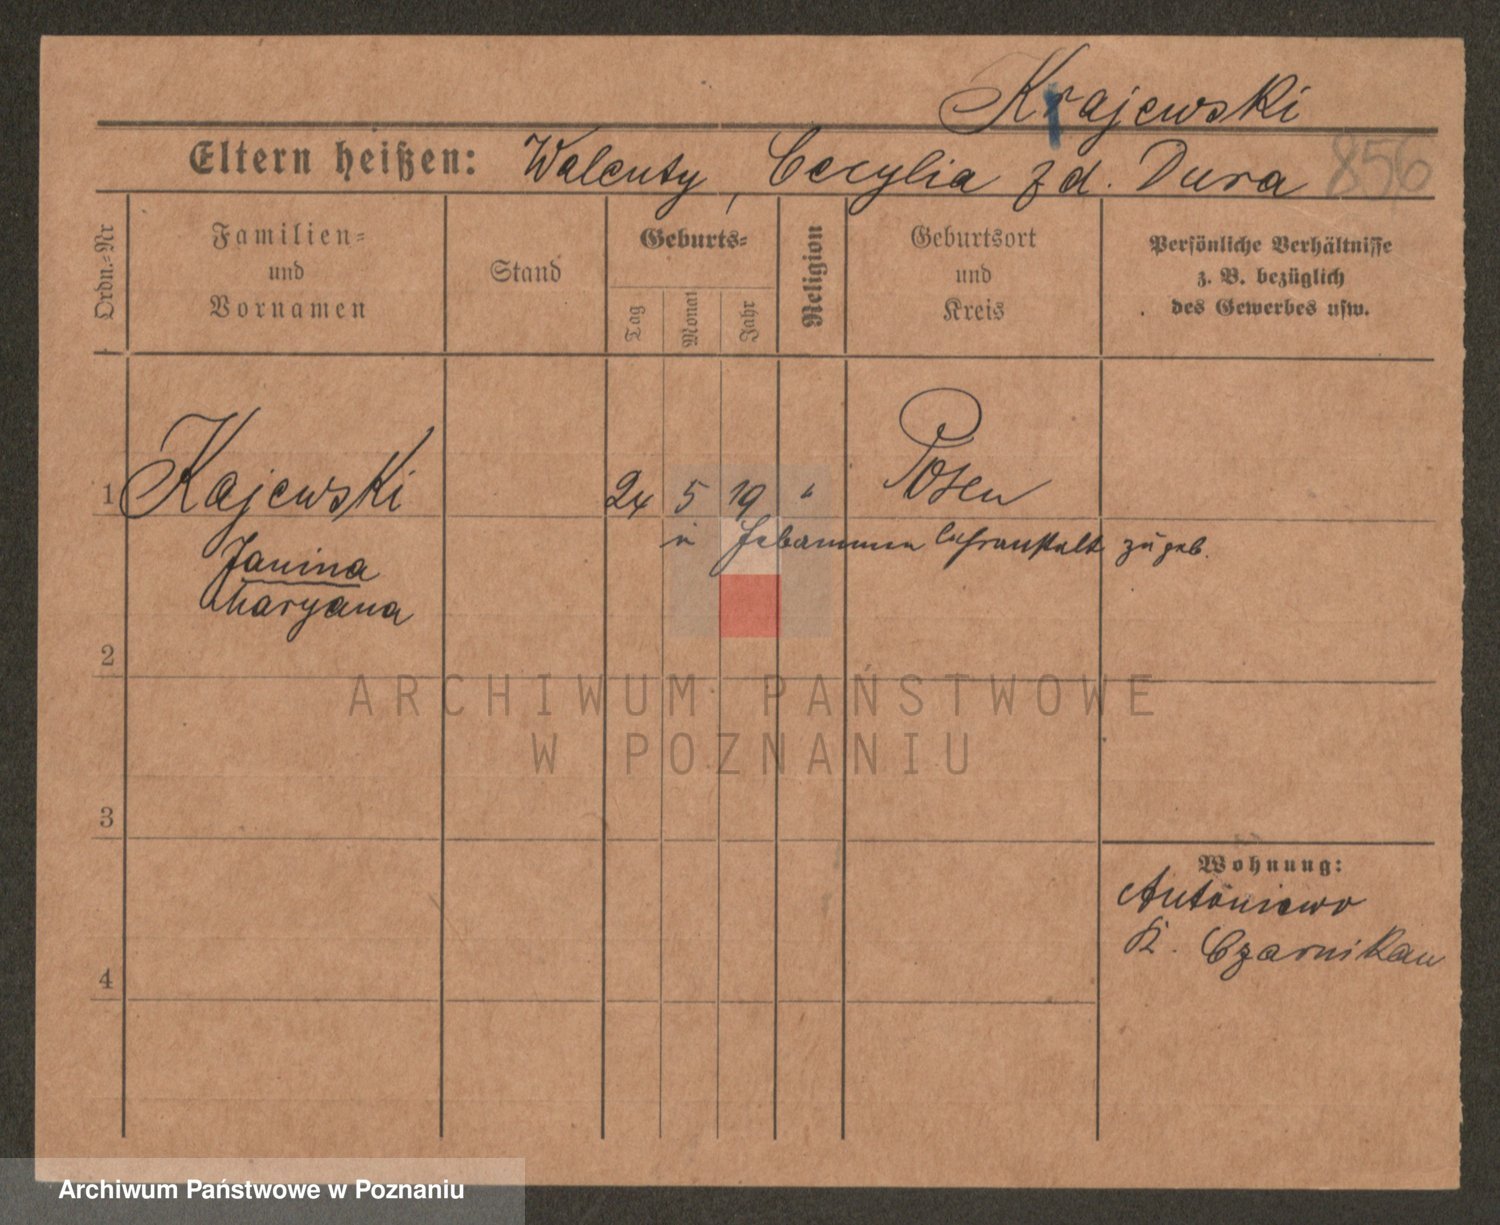 Krajewski
Eltern heißen: Walenty, Cecylia z d. Dura 856
Ordn.=Nr
Familien=
und
Vornamen
Stand
Geburts=
Tag
Monat
Jahr
Religion
Geburtsort
und
Kreis
Persönliche Verhältnisse
z. B. bezüglich
des Gewerbes usw.
1 Kajewski 24 5 19 " Posen
in Hebammen Lehranstalt zu geb.
Janina
Maryana
2
ARCHIWUM PAŃSTWOWE
W POZNANIU
3
Wohnung:
Antoniewo
K. Czarnikau
4
Archiwum Państwowe w Poznaniu